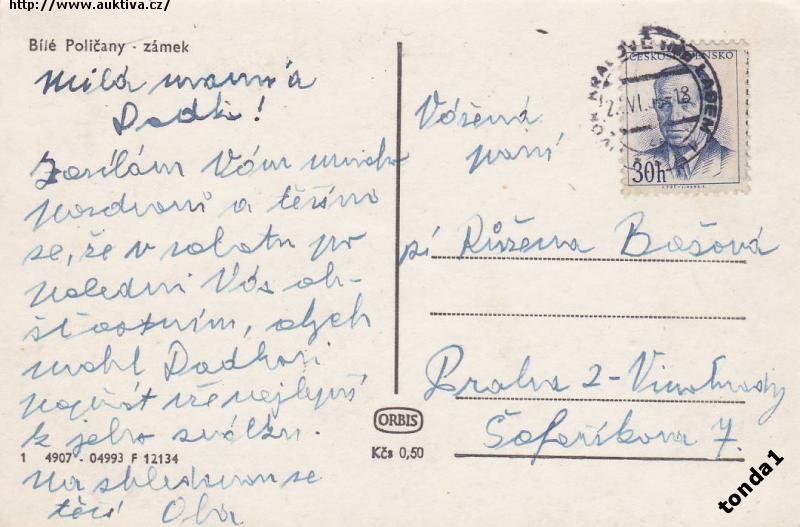 http://www.auktiva.cz/
Bílé Poličany - zámek
Milá maminko a
Dědo!
Zasílám Vám mnoho
pozdravů a těším
se, že v sobotu po
poledni Vás
abych
mohl
vše nejlepší
k jeho svátku.
Na shledanou se
těší
1 4907 - 04993 F 12134
Vážená
paní
pí Růžena Bašová
Praha 2 - Vinohrady
Šafaříkova 7.
ORBIS
Kčs 0,50
ČESKOSLOVENSKO
30h
tonda1